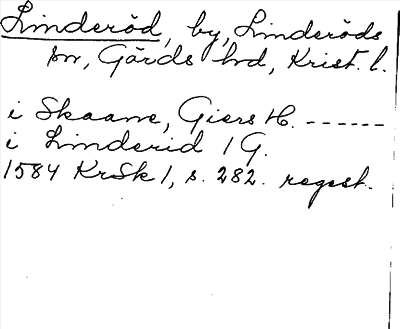 Linderöd, by, Linderöds
sn, Gärds hd, Krist. l.
i Skaane, Giers H. ------
i Linderid 1 G.
1584 KrSk 1, s. 282. regest.